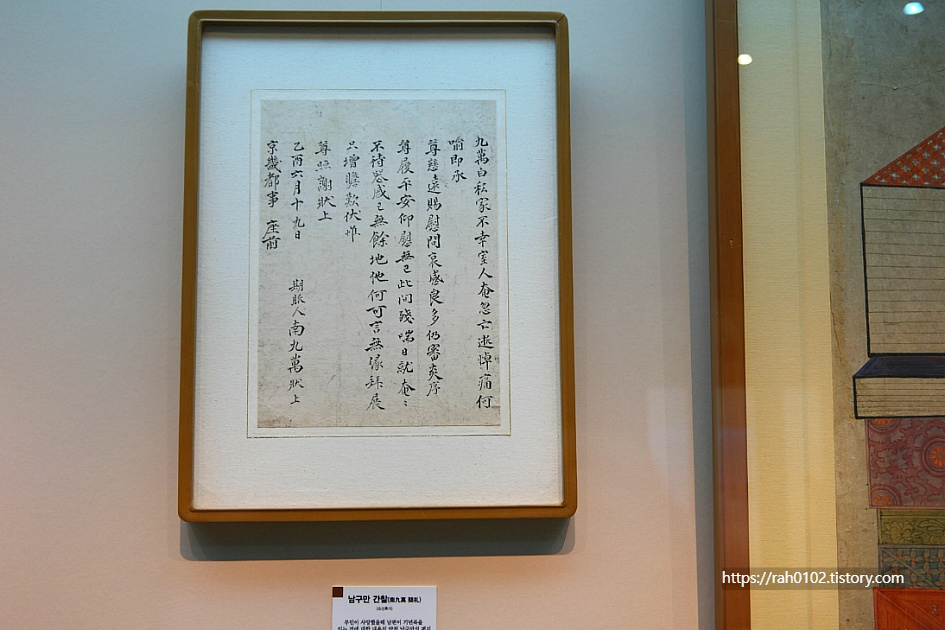 九萬白私家不幸室人奄忽亡逝悼痛何
喩即承
尊慈遠賜慰問哀感良多仍審炎序
尊履平安仰慰無已此間殘喘日就奄〻
不待 已無餘地他何可言無緣拜展
只增瞻歎伏惟
尊照謝狀上
乙酉六月十九日 期服人南九萬狀上
京畿都事 座前
남구만 간찰(南九萬 簡札)
부인이 사망했을때 남편이 기년복을
https://rah0102.tistory.com